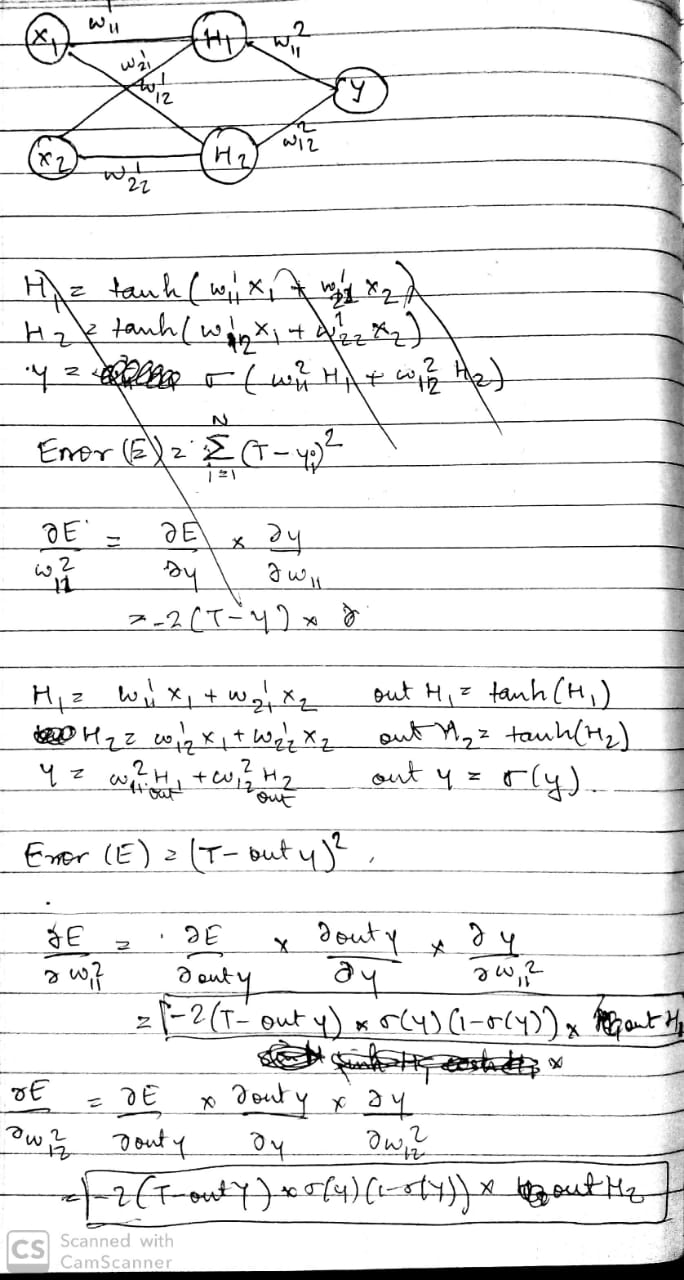 x₁ w₁₁¹ H₁ w₁₁²
w₂₁¹
w₁₂¹ y
x₂ w₂₂¹ H₂ w₁₂²
H₁ = tanh(w₁₁¹ x₁ + w₂₁¹ x₂)
H₂ = tanh(w₁₂¹ x₁ + w₂₂¹ x₂)
y = σ(w₁₁² H₁ + w₁₂² H₂)
Error (E) = Σᵢ₌₁ᴺ (T - yᵢ)²
∂E / w₁₁² = ∂E/∂y × ∂y/∂w₁₁
= -2(T-y) × ∂
H₁ = w₁₁¹ x₁ + w₂₁¹ x₂ out H₁ = tanh(H₁)
H₂ = w₁₂¹ x₁ + w₂₂¹ x₂ out H₂ = tanh(H₂)
y = w₁₁² H₁ out + w₁₂² H₂ out out y = σ(y).
Error (E) = (T - out y)²,
∂E/∂w₁₁² = ∂E/∂out y × ∂out y/∂y × ∂y/∂w₁₁²
= -2(T- out y) × σ(y)(1-σ(y)) × out H₁
∂E/∂w₁₂² = ∂E/∂out y × ∂out y/∂y × ∂y/∂w₁₂²
= -2(T-out y) × σ(y)(1-σ(y)) × out H₂
CS Scanned with
CamScanner